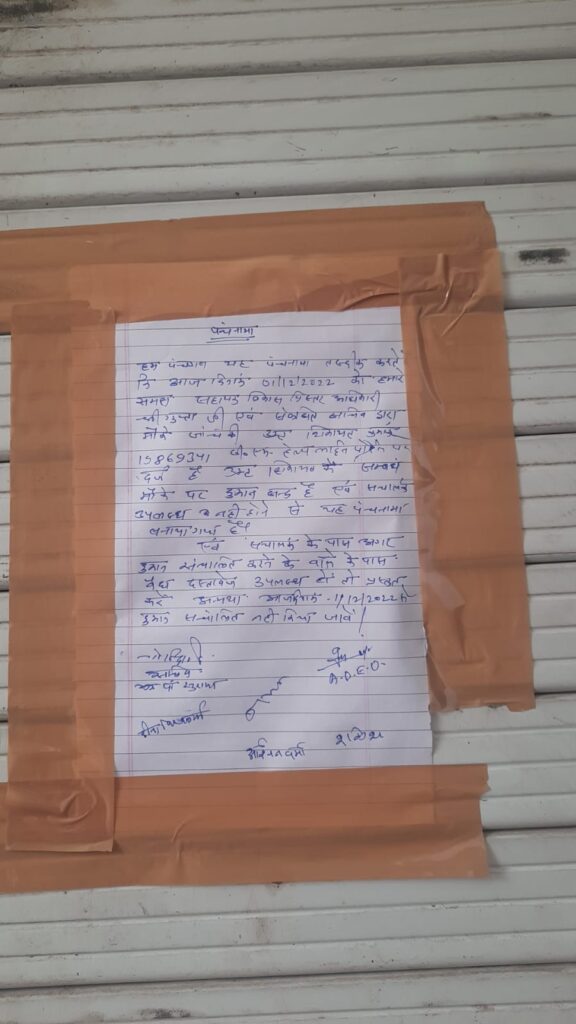 पंचनामा
हम पंचगण यह पंचनामा तस्दीक करते
कि आज दिनांक 01/12/2022 को हमारे
समक्ष सहायक विकास विस्तार अधिकारी
श्री गुप्ता जी एवं सचिव द्वारा
मौके जांच की शिकायत क्रमांक
15869341 सी.एम. हेल्प लाईन पोर्टल पर
दर्ज है शिकायत के सम्बंध
मौके पर दुकान बन्द है एवं संचालक
उपलब्ध नही होने से यह पंचनामा
बनाया गया है
एवं संचालक के पास अगर
दुकान संचालित करने के के पास
वैध दस्तावेज उपलब्ध हो तो प्रस्तुत
करें अन्यथा आज दिनांक 1/12/2022 से
दुकान संचालित नही किया जावें!
सचिव
A.D.E.O.